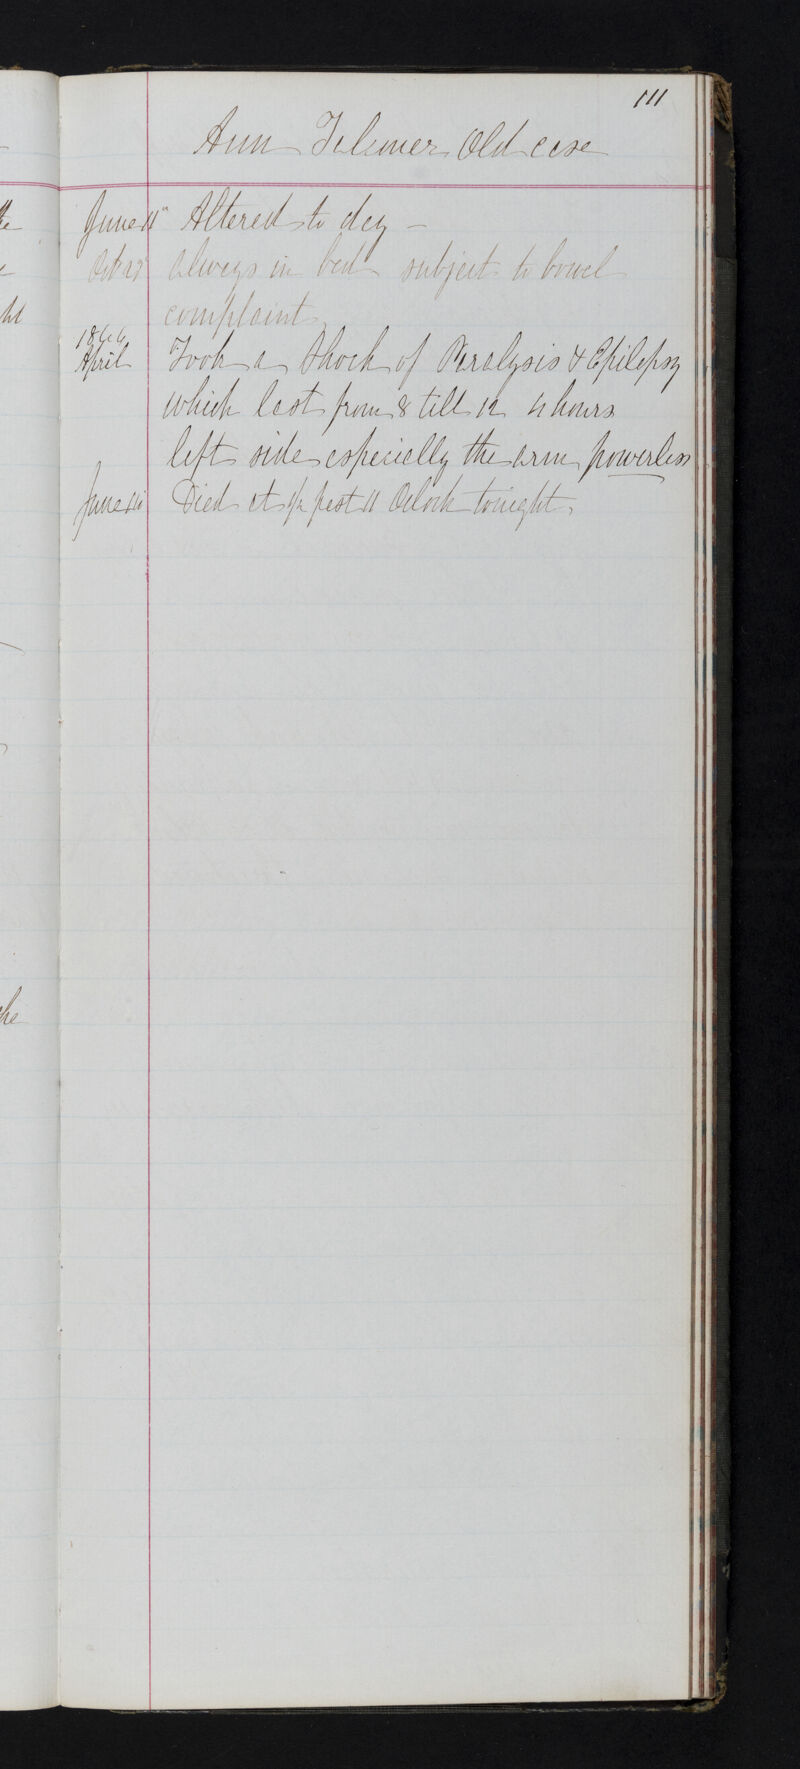 111
Ann Old case
June 11th Altered to day -
Octr always in bed subject to bowel
complaint
1866
April Took a Shock of Paralysis & Epilepsy
which last from 8 till 12 4 hours
left side especially the arm powerless
June Died at ½ past 11 Oclock tonight.
the